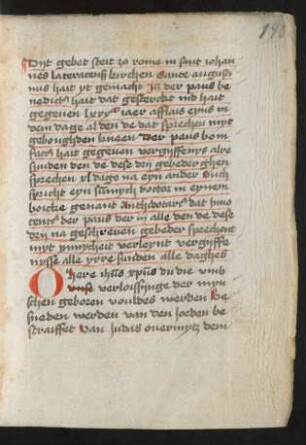 198
Dyt gebet steit zo rome in sint iohan
nes lateranensi kirchen Sante augusti
nus hait yt gemacht In der paus be
nedict9 hait dat gesterckt ind hait
gegeuen lxxx iaer afflais eyns in
dem dage al den de dat sprechen myt
geboughden kneen Der paus bon
facius hait gegeuen vergyffenys alre
sunden den de dese dry gebeder ghen
sprechen xl dage na eyn ander Ouch
spricht eyn doctor in eynem
boicke genant dat Inno
cencius der paus der in alle den de dese
den na geschreuen gebeder sprechent
myt ynnicheit verleynt vergiffe
nysse alle yrre sunden alle daghes
O here ihus xpus du die vmb
vnse verloissynge der myn
schen geboren wouldes werden be
snieden werden van den joeden be
straiffet van judas ouermytz dem